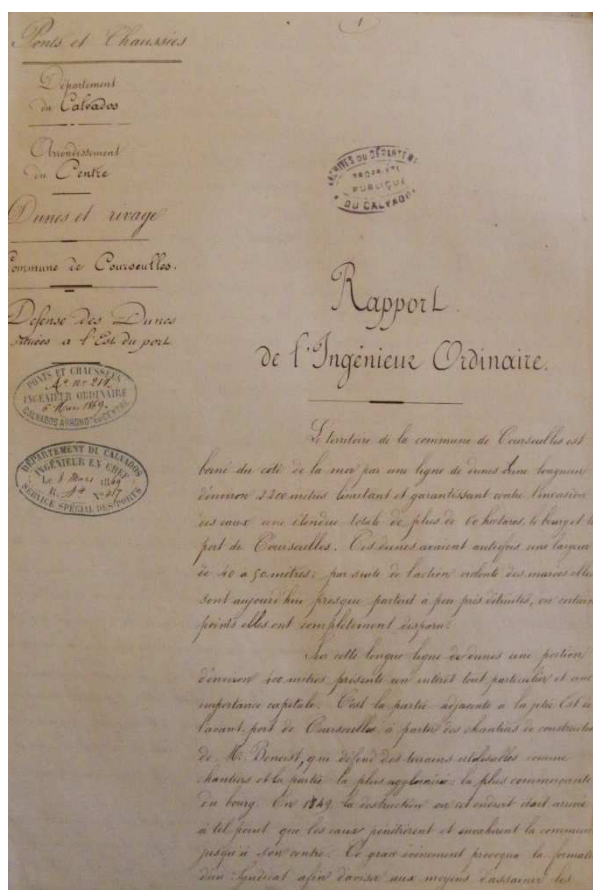 (1)
Ponts et Chaussées
Département
du Calvados
Arrondissement
du Centre
Dunes et rivage
Commune de Courseulles.
Défense des Dunes
situées a l'Est du port.
PONTS ET CHAUSSÉES
INGÉNIEUR ORDINAIRE
6 Mars 1869.
CALVADOS ARROND^t DU CENTRE
DÉPARTEMENT DU CALVADOS
INGÉNIEUR EN CHEF
Le Mars 1869
N°
SERVICE SPÉCIAL DES PORTS
ARCHIVES DU DÉPARTEM
PROPRIÉTÉ
PUBLIQUE
DU CALVADOS
Rapport
de l'Ingénieur Ordinaire.
Le territoire de la commune de Courseulles est
borné du coté de la mer par une ligne de dunes d'une longueur
d'environ 2200 mètres limitant et garantissant contre l'invasion
des eaux une étendue totale de plus de 60 hectares, le bourg et le
port de Courseulles. Ces dunes avaient autrefois une largeur
de 40 a 50 mètres; par suite de l'action des marées elles
sont aujourd'hui presque partout a peu près détruites, en certains
points elles ont complètement disparu.
Sur cette longue ligne de dunes une portion
d'environ 400 mètres présente un intérêt tout particulier et une
importance capitale. C'est la partie adjacente a la jetée Est de
l'avant port de Courseulles, à partir des chantiers de construction
de M. Benoist, qui défend des terrains comme
chantiers et la partie la plus agglomérée, la plus commerçante
du bourg. En 1849, la destruction en cet endroit était arrivée
à tel point que les eaux pénétrèrent et envahirent la commune
jusqu'à son centre. Ce grave évènement provoqua la formation
d'un Syndicat afin d'aviser aux moyens d'assainir les